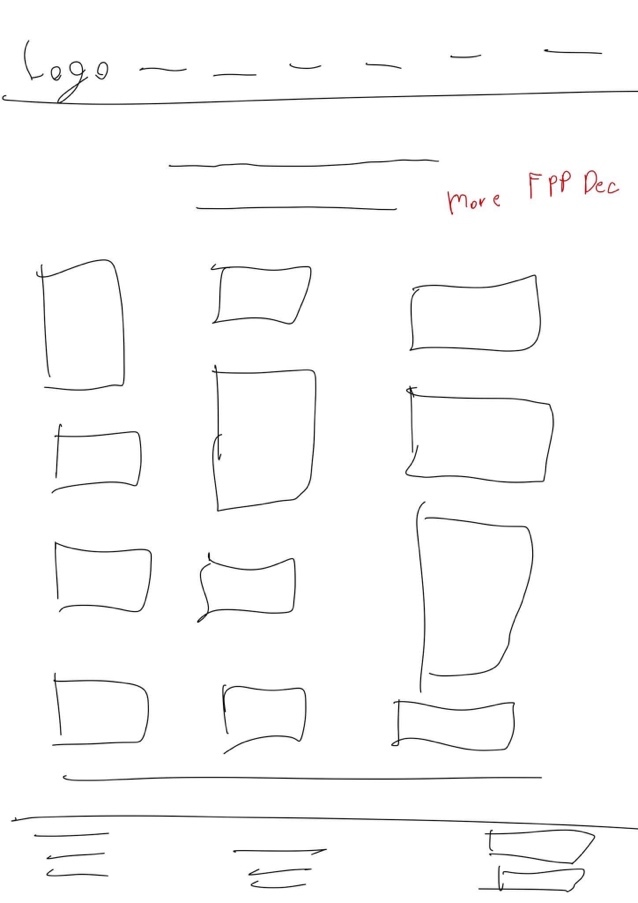 Logo
More FPP Dec